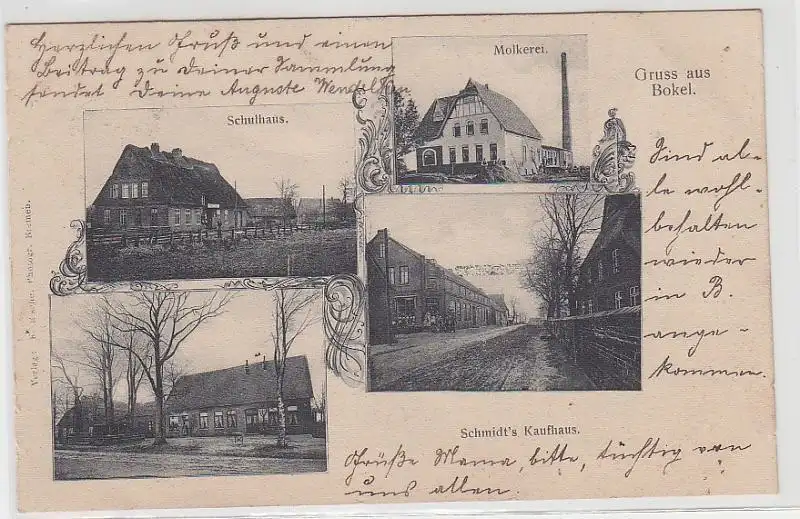 Herzlichen Gruß und einen
Beitrag zu deiner Sammlung
sendet Deine Auguste
Molkerei.
Gruss aus
Bokel.
Schulhaus.
Sind al-
le wohl-
behalten
wieder
in B.
ange-
kommen.
Schmidt's Kaufhaus.
Grüße Mama, bitte, tüchtig von
uns allen.
Verlag: Photogr. Bremen.